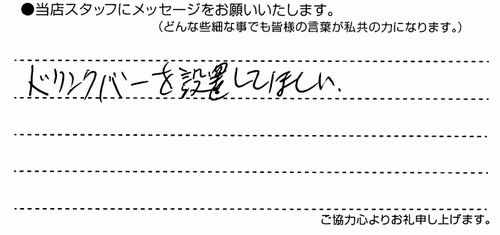 ●当店スタッフにメッセージをお願いいたします。
（どんな些細な事でも皆様の言葉が私共の力になります。）
ドリンクバーを設置してほしい.
ご協力心よりお礼申し上げます。